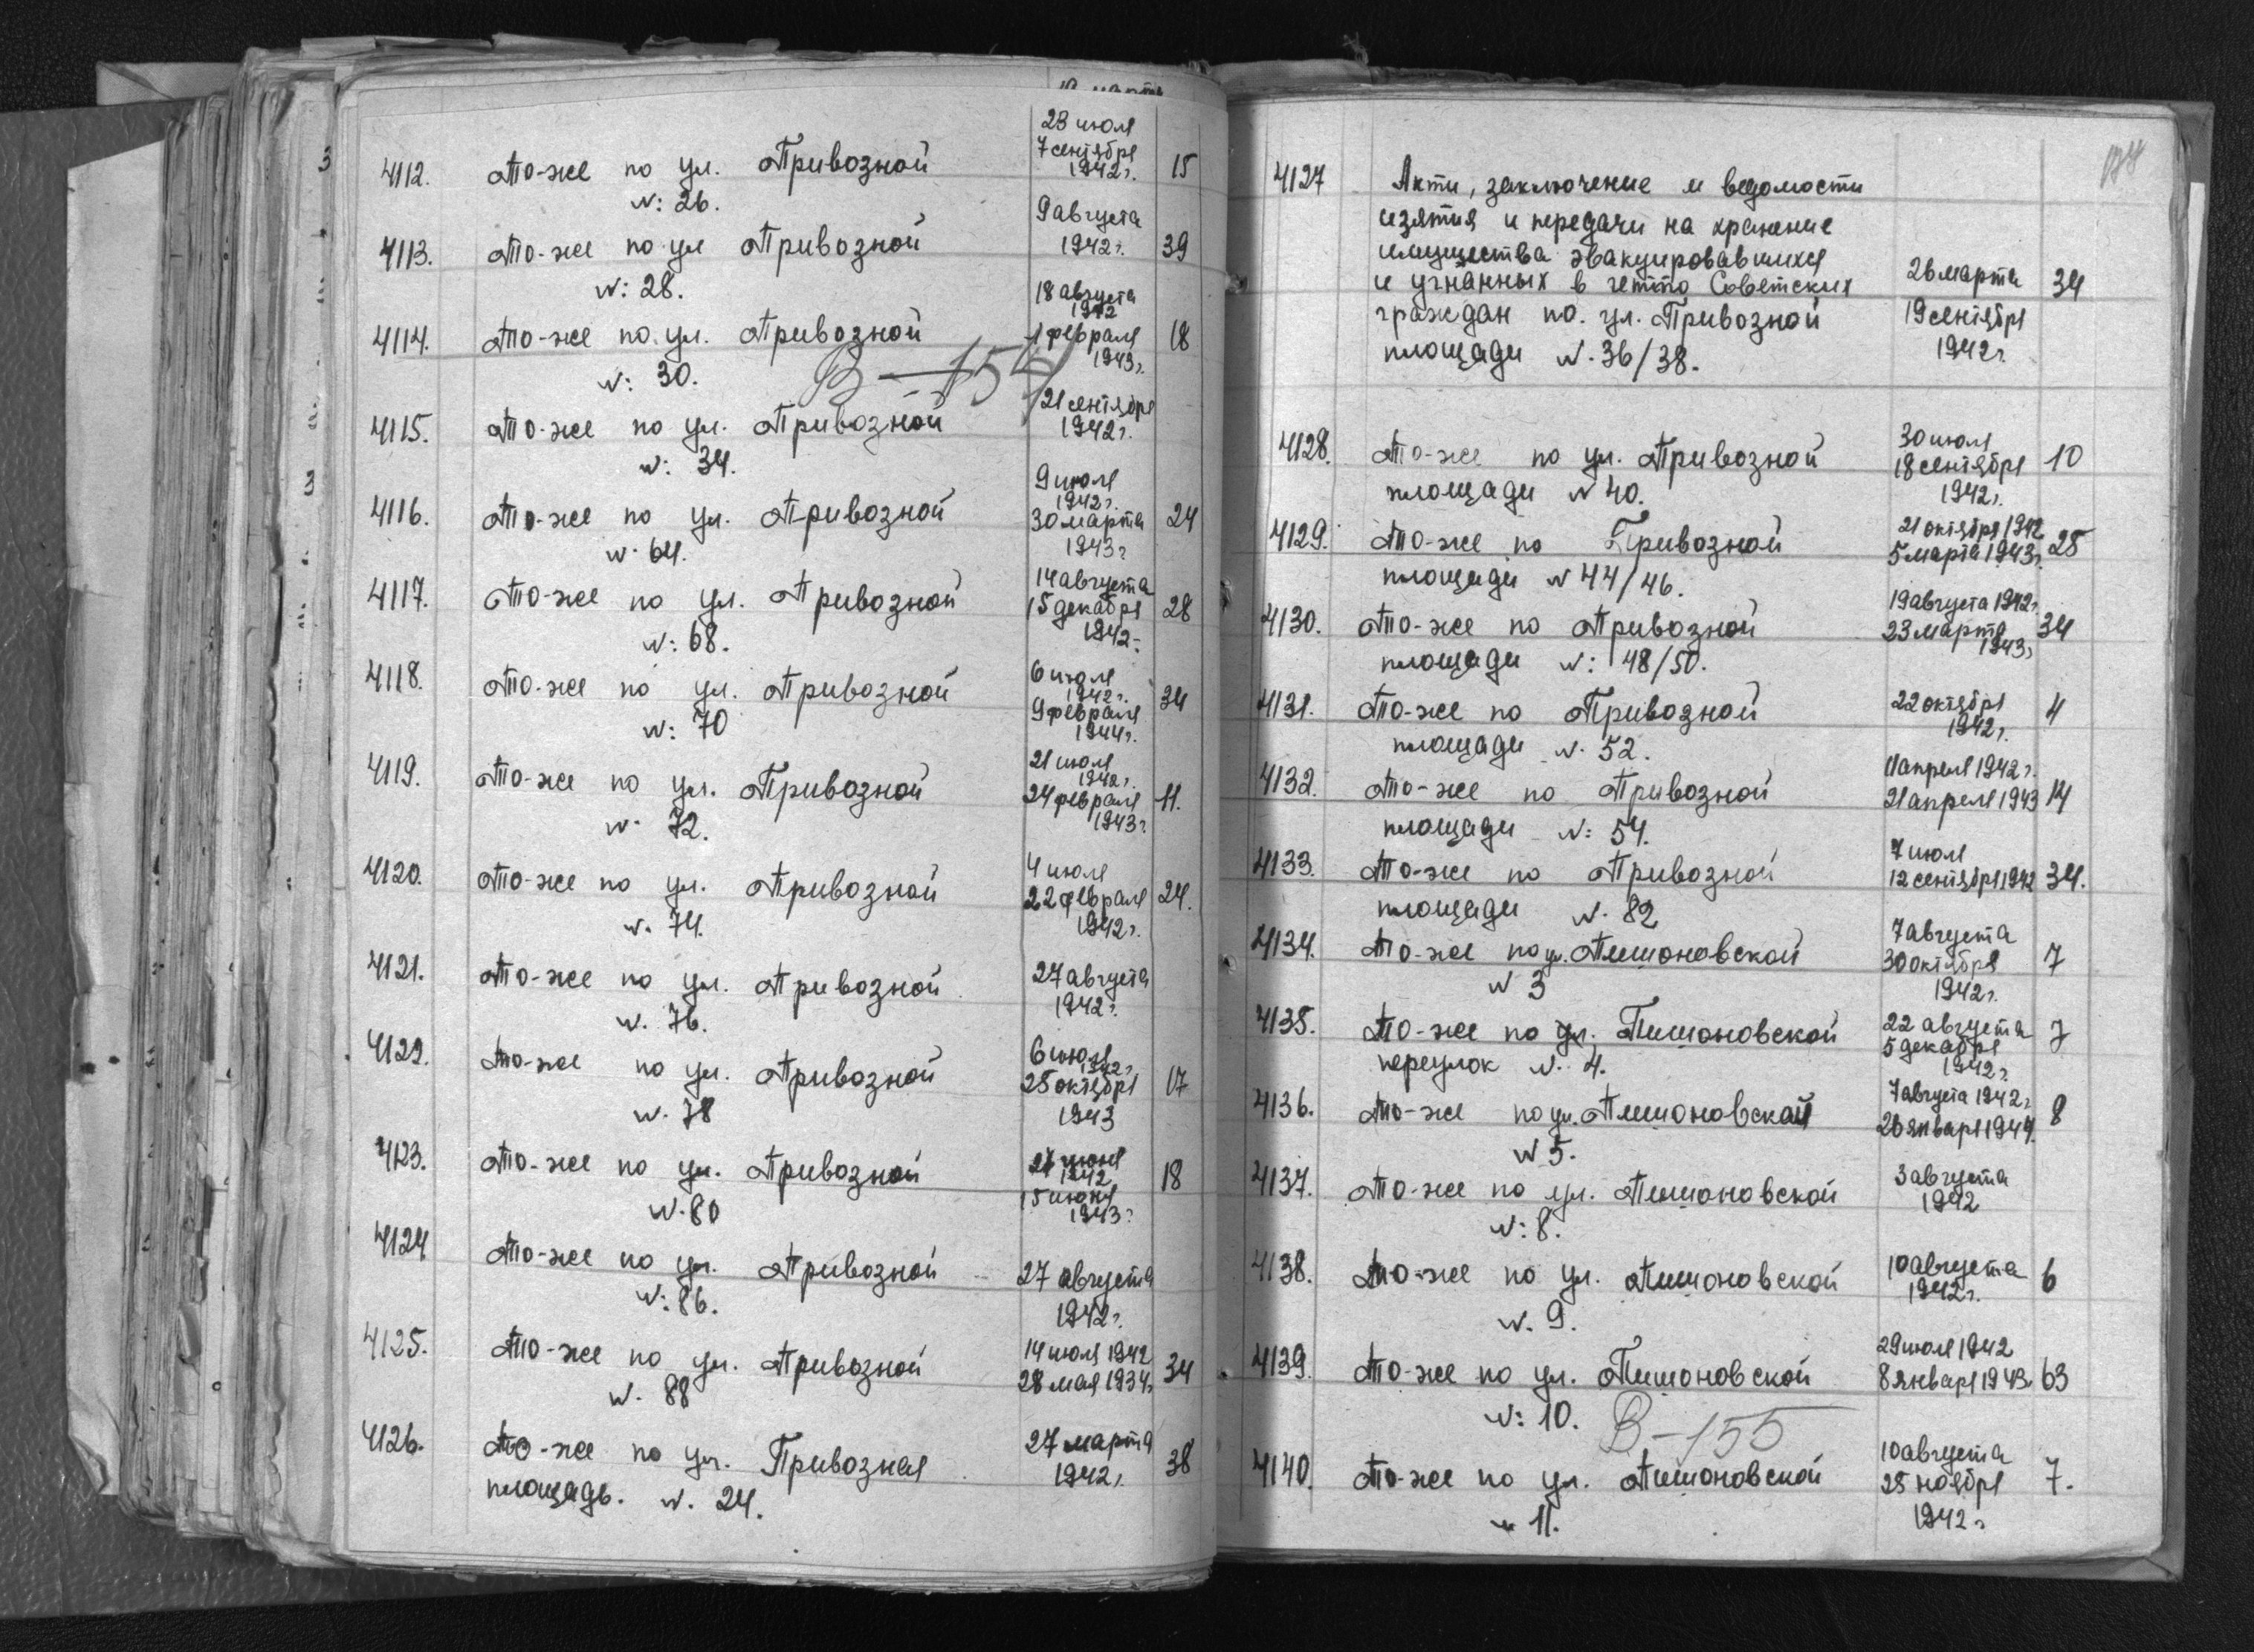 23 июля
7 сентября
4112. То-же по ул. Привозной 1942г. 15
N: 26.
9 августа
4113. То-же по ул Привозной 1942г. 39
N: 28.
18 августа
1942
4114. То-же по ул. Привозной 1 февраля 18
N: 30. 1943г.
В-154
21 сентября
4115. То-же по ул. Привозной 1942г.
N: 34.
9 июля
1942г.
4116. То-же по ул. Привозной 30 марта 24
N. 64. 1943г
14 августа
4117. То-же по ул. Привозной 15 декабря 28
N: 68. 1942г.
6 июля
1942г.
4118. То-же по ул. Привозной 9 февраля 34
N: 70 1944г.
21 июля
1942г.
4119. То-же по ул. Привозной 24 февраля 11.
N. 72. 1943г
4 июля
4120. То-же по ул. Привозной 22 февраля 24.
N. 74. 1942г.
4121. То-же по ул. Привозной 27 августа
N. 76. 1942г.
6 июля
1942г.
4122. То-же по ул. Привозной 25 октября 17
N. 78 1943
27 июня
1942
4123. То-же по ул. Привозной 15 июня 18
N. 80 1943г
4124 То-же по ул. Привозной 27 августа
N: 86. 1942г.
14 июля 1942
4125. То-же по ул. Привозной 28 мая 1934г. 34
N. 88
27 марта
4126. То-же по ул. Привозная 1942г. 38
площадь. N. 24.
4127 Акти, заключение и ведомости
изятия и передачи на хранение
имущества эвакуировавшихся
и угнанных в гетто Советских 26 марта 34
граждан по. ул. Привозной 19 сентября
площади N. 36/38. 1942г.
30 июля
4128. То-же по ул. Привозной 18 сентября 10
площади N 40. 1942г.
21 октября 1942
4129. То-же по Привозной 5 марта 1943г. 25
площади N 44/46.
19 августа 1942г.
4130. То-же по Привозной 23 марта 34
площади N: 48/50. 1943г
4131. То-же по Привозной 22 октября 4
площади N. 52. 1942г.
11 апреля 1942г.
4132. То-же по Привозной 21 апреля 1943 14
площади N: 54.
7 июля
4133. То-же по Привозной 12 сентября 1942 34.
площади N. 82
7 августа
4134. То-же по ул. Пишоновской 30 октября 7
N 3 1942г.
22 августа
4135. То-же по ул. Пишоновской 5 декабря 7
переулок N. 4. 1942г.
7 августа 1942г.
4136. То-же по ул. Пишоновской 26 января 1944. 8
N 5.
3 августа
4137. То-же по ул. Пишоновской 1942
N: 8.
4138. То-же по ул. Пишоновской 10 августа 6
N. 9. 1942г.
29 июля 1942
4139. То-же по ул. Пишоновской 8 января 1943г. 63
N: 10. В-155
10 августа
4140. То-же по ул. Пишоновской 25 ноября 7.
N 11. 1942г